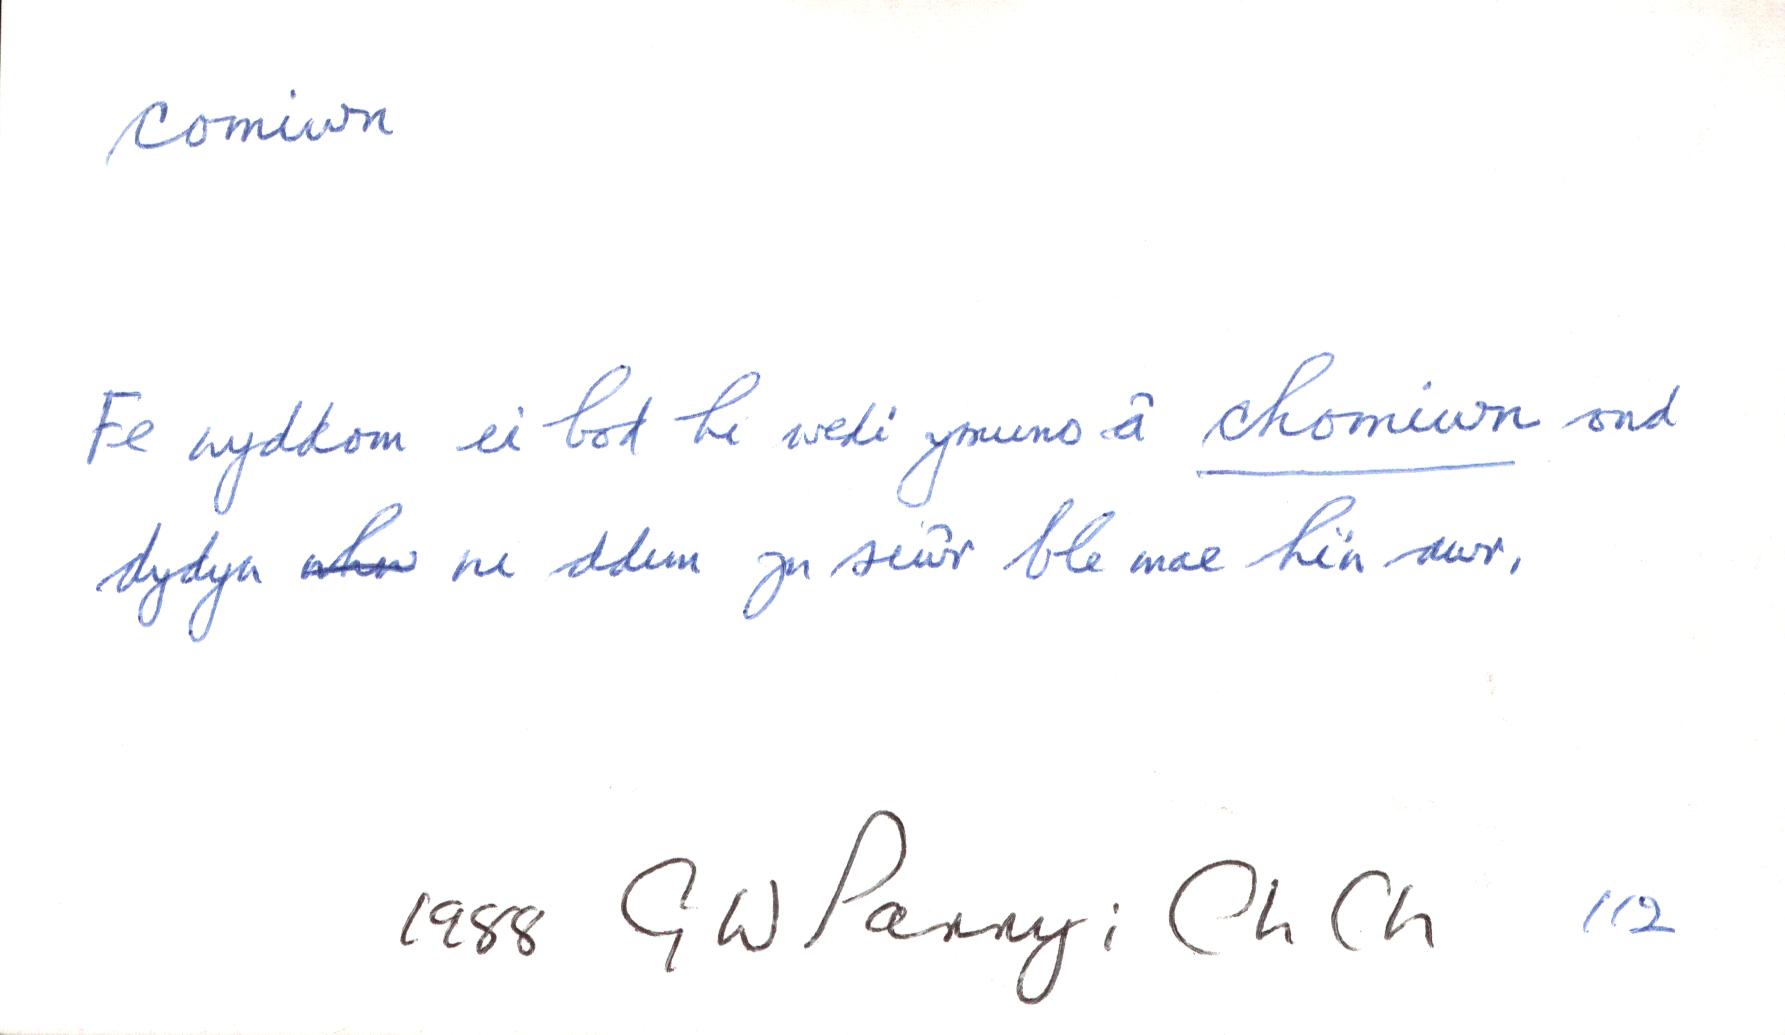 comiwn
Fe wyddom ei bod hi wedi ymuno â chomiwn ond
dydyn ni ddim yn siŵr ble mae hi'n awr.
1988 G W Parry: Ch Ch 112